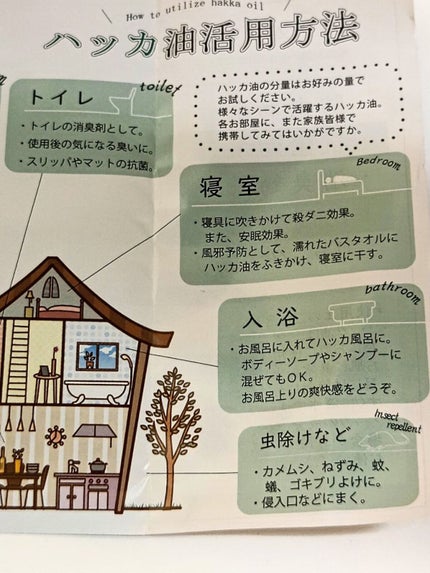 How to utilize hakka oil
ハッカ油活用方法
トイレ
toilet
・トイレの消臭剤として。
・使用後の気になる臭いに。
・スリッパやマットの抗菌。
ハッカ油の分量はお好みの量で
お試しください。
様々なシーンで活躍するハッカ油。
各お部屋に、また家族皆様で
携帯してみてはいかがですか。
Bedroom
寝室
・寝具に吹きかけて殺ダニ効果。
また、安眠効果。
・風邪予防として、濡れたバスタオルに
ハッカ油をふきかけ、寝室に干す。
bathroom
入浴
・お風呂に入れてハッカ風呂に。
ボディーソープやシャンプーに
混ぜてもOK。
お風呂上りの爽快感をどうぞ。
insect
repellent
虫除けなど
・カメムシ、ねずみ、蚊、
蟻、ゴキブリよけに。
・侵入口などにまく。